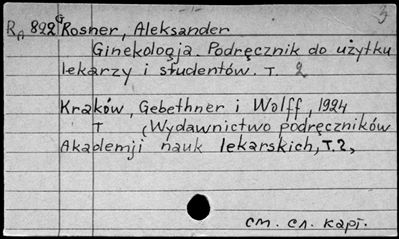 3
RA 822 G Rosner, Aleksander
Ginekologja. Podręcznik do użytku
lekarzy i studentów. T. 2
Kraków, Gebethner i Wolff, 1924
T (Wydawnictwo podręczników
Akademji nauk lekarskich, T. 2,
см. сл. карт.